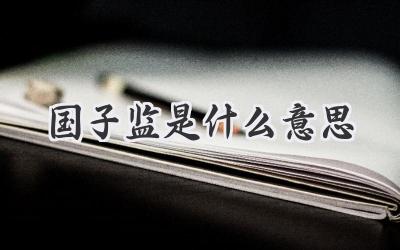 国子监是什么意思